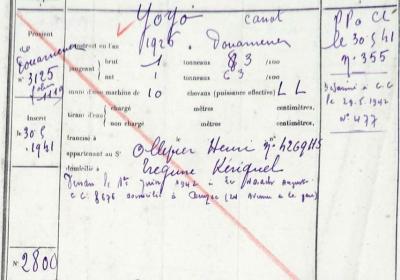 Yoyo canot
Provient
de
Douarnenez
N° 3125
construit en l'an 1926 Douarnenez
jaugeant
brut 1 tonneaux 83 /100
net 1 tonneaux 63 /100
muni d'une machine de 10 chevaux (puissance effective) LL
tirant d'eau
chargé mètres centimètres,
non chargé mètres centimètres,
francisé à
appartenant au Sr Ollivier Henri n° 4269
domicilié à Tregunc Kériquel
Vendu le 1er Juin 1942 à
C.C. 8676 domicilié à (24 Avenue de la gare)
Inscrit
le 30.5
1941
N° 2800
P.P. CC
le 30.5 41
n° 355
Désarmé à C.C
le 29.5.1942
N° 477